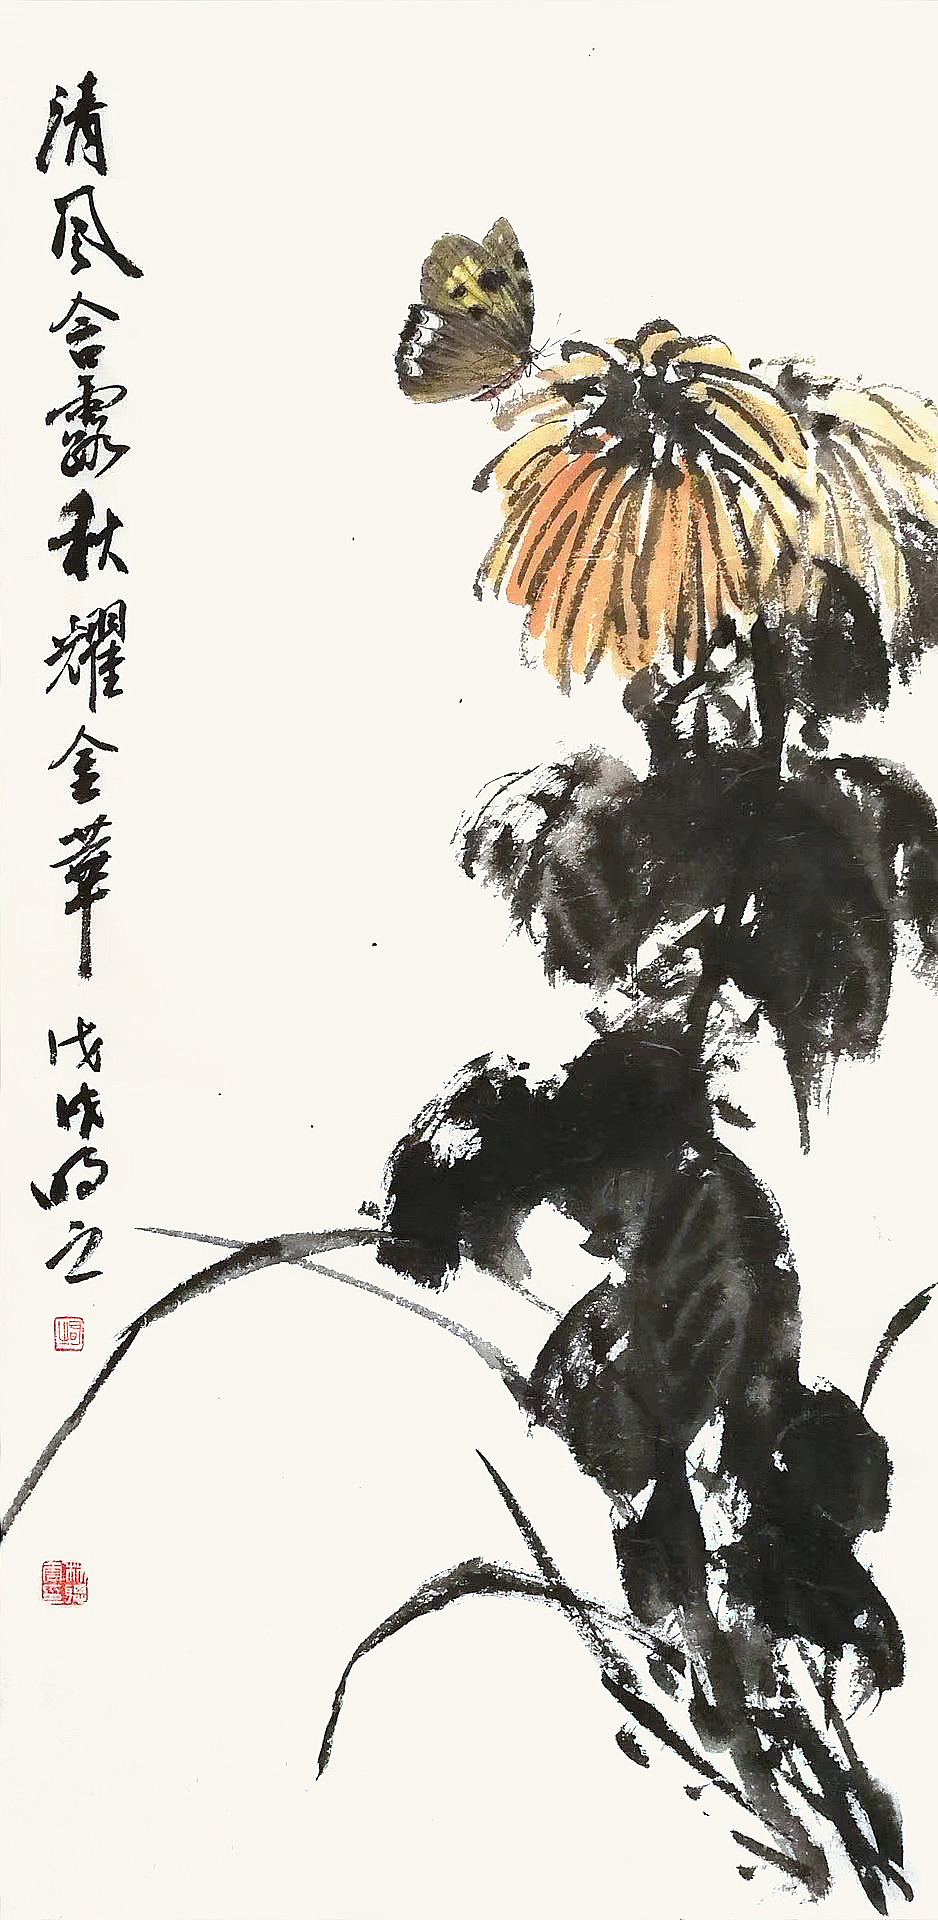 清风含露秋耀金華 戊戌